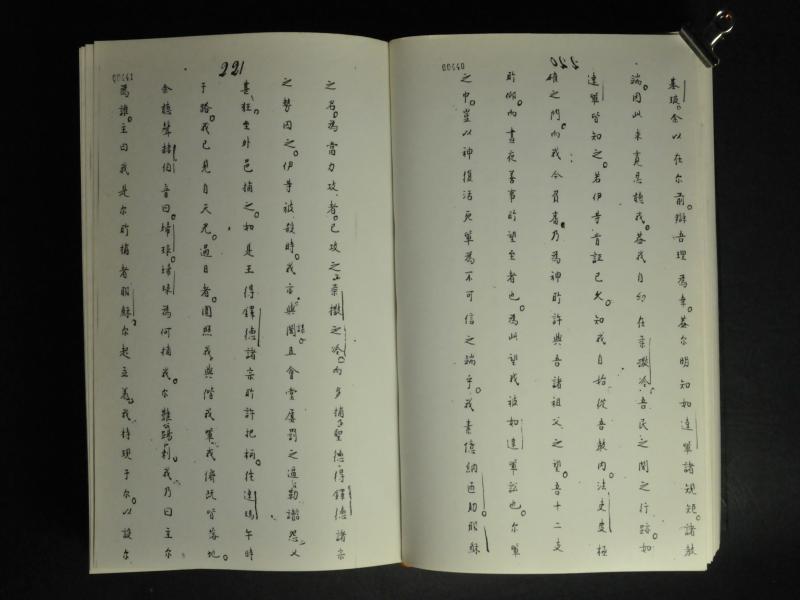 00440
220
基琰。余以在尔前。辯吾理為幸。葢尔明知如達軍諸規矩諸教
端。因此来責忍聽我。葢我自幼在柔撒冷。吾民之間之行踪。如
達軍皆知之。若伊等肯証已久。知我自始從吾教内法吏嚴極
確之門。而我今負審。乃為神所許與吾諸祖父之望。吾十二支
所仰。而晝夜善事所望至者也。為此望我被如達軍訟也。尔軍
之中。豈以神復活死軍為不可信之端乎。我素億納匝助耶穌
221
00441
之名。為當力攻者。已攻之于柔撒冷。而多捕聖德。得鐸德諸宗
之勢因之。伊等被殺時。我亦與謀。且會堂屢罰之逼勒謗怨。又
甚狂。至外邑捕之。如是王得鐸德諸宗所許把柄。徃達瑪午時
于路。我已見自天光。過日者。圍照我。與偕我軍。我儕既皆落地。
余聽聲赫伯音曰。掃琭。掃琭為何捕我。尔難踢刺。我乃曰主尔
為誰。主曰我是尔所捕者耶穌。尔起立着。我特現于尔。以設尔